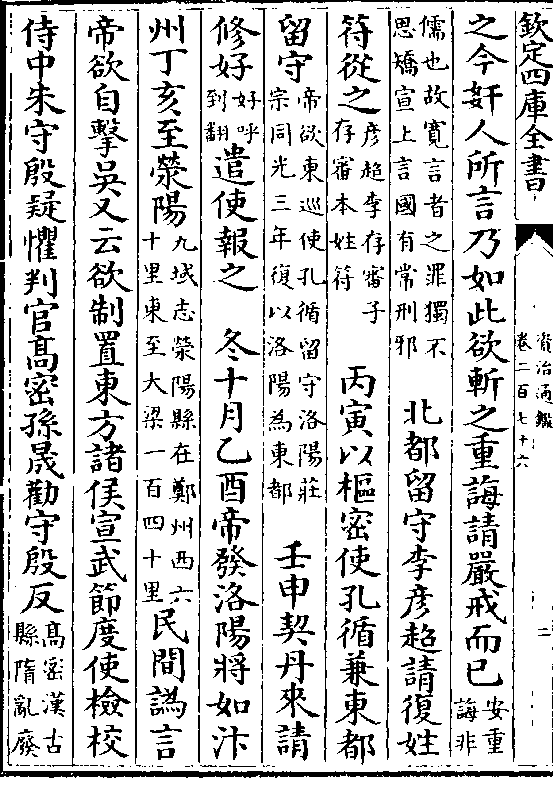 欽定四庫全書
資治通鑑
卷二百七十六
二
之今奸人所言乃如此欲斬之重誨請嚴戒而已安重誨非
儒也故寬言者之罪獨不思矯宣上言國有常刑邪 北都留守李彦超請復姓
符從之彦超李存審子存審本姓符 丙寅以樞密使孔循兼東都
留守帝欲東巡使孔循留守洛陽莊宗同光三年復以洛陽為東都 壬申契丹來請
修好好呼到翻遣使報之 冬十月乙酉帝發洛陽將如汴
州丁亥至滎陽九域志滎陽縣在鄭州西六十里東至大梁一百四十里民間譌言
帝欲自擊吳又云欲制置東方諸侯宣武節度使檢校
侍中朱守殷疑懼判官髙密孫晟勸守殷反髙密漢古縣隋亂廢